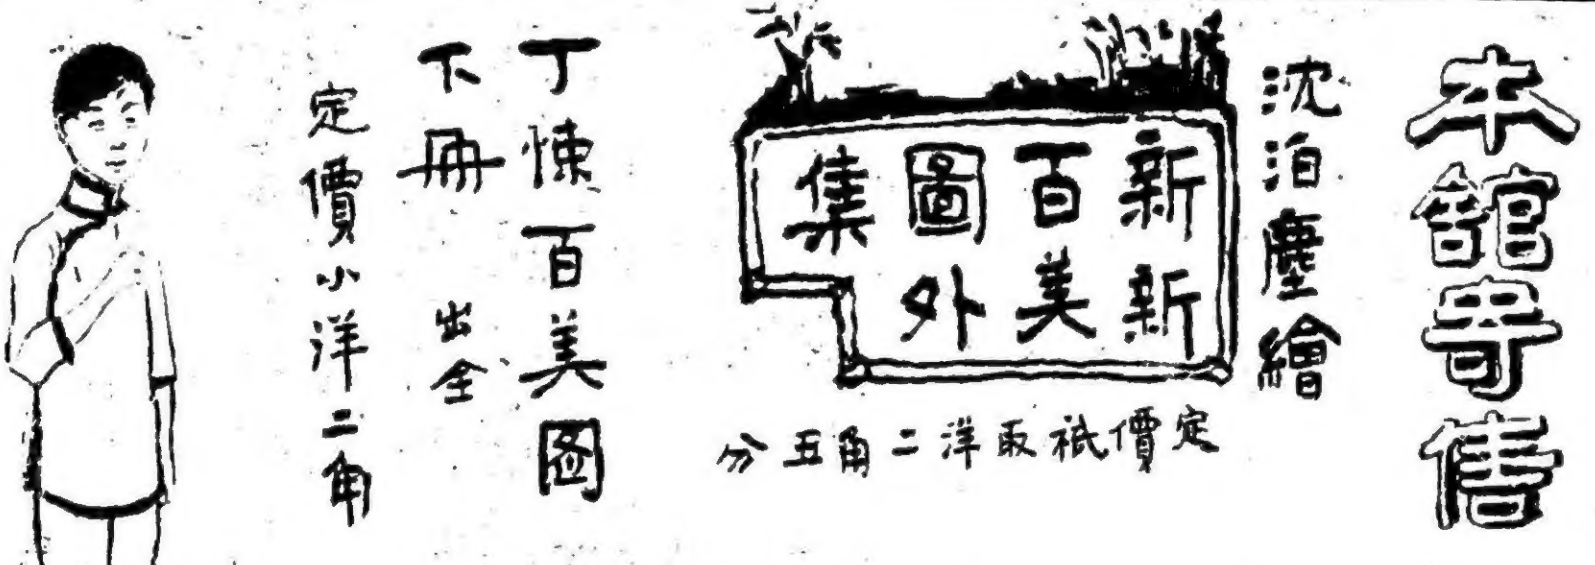 本館寄售
沈泊塵繪
新新
百美
圖外
集
定價祇取洋二角五分
丁悚百美图
下冊 出全
定價小洋二角